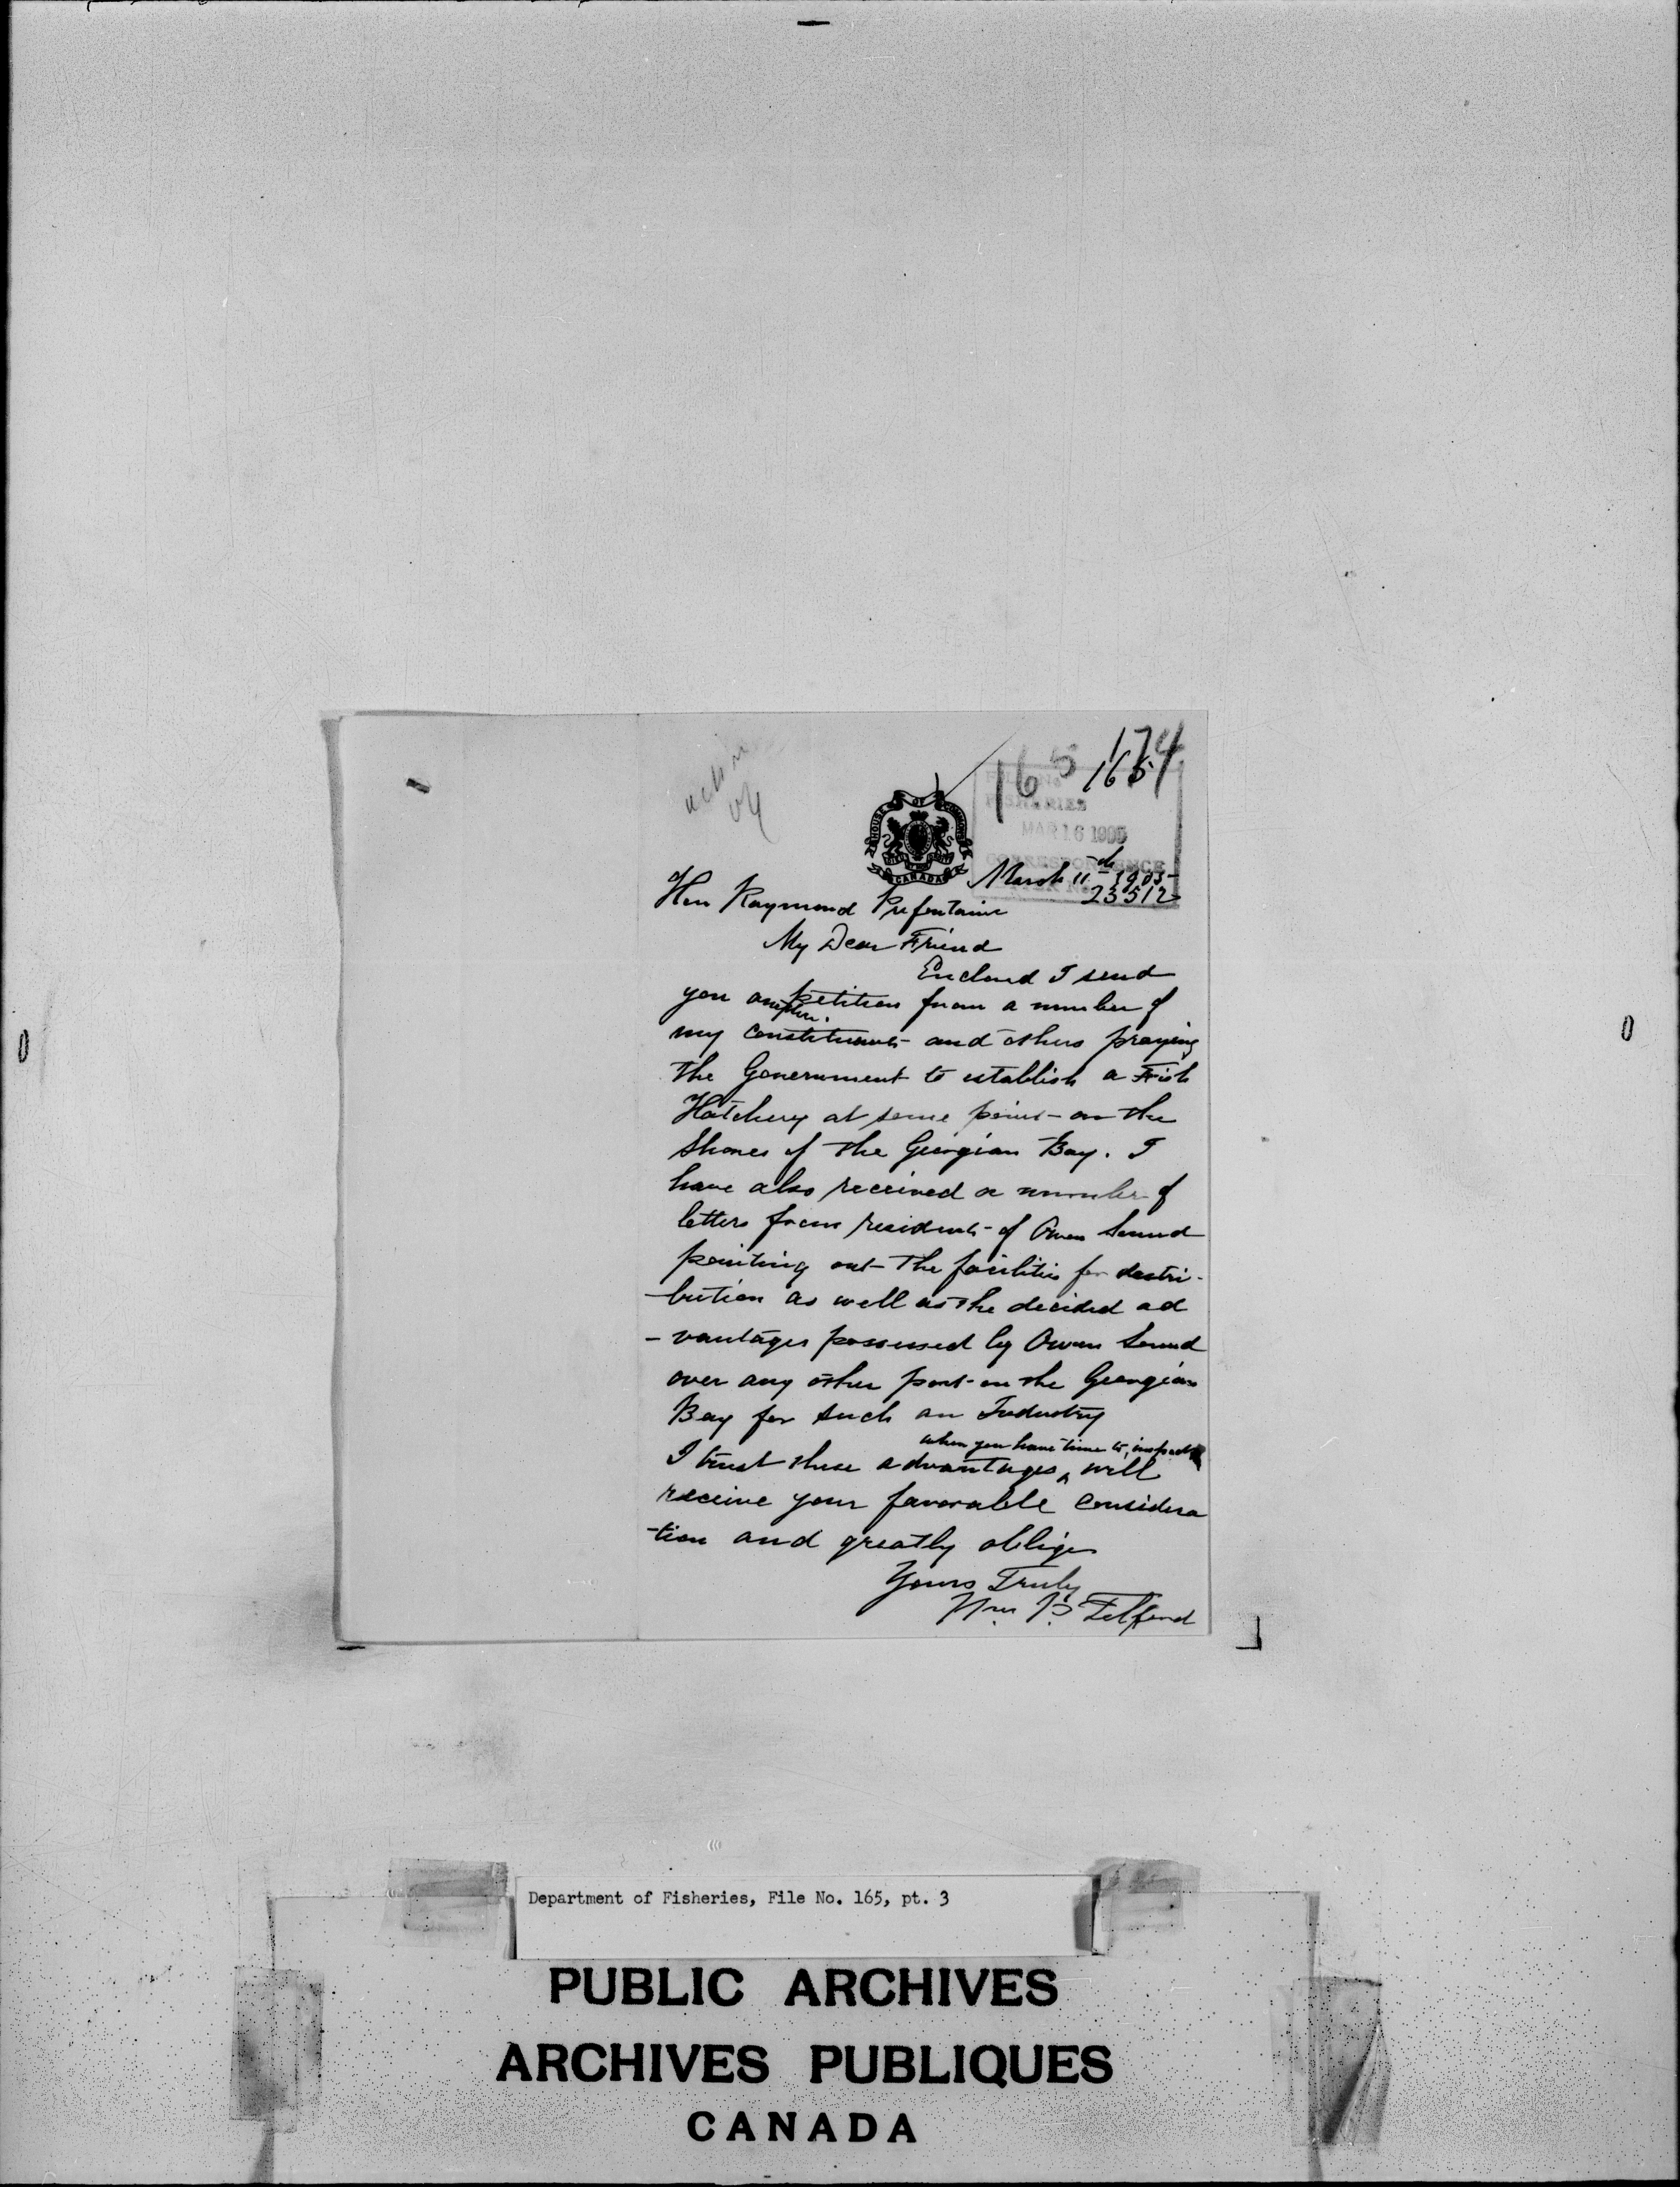 174
165 165
HOUSE OF COMMONS
CANADA
FISHERIES
MAR 16 1905
CORRESPONDENCE
March 11th 1905
23512
Hon Raymond Prefontaine
My Dear Friend
Enclosed I send
you another petition from a number of
my constituents and others praying
the Government to establish a Fish
Hatchery at some point on the
Shores of the Georgian Bay. I
have also received a number of
letters from residents of Owen Sound
pointing out the facilities for destri-
-bution as well as the decided ad
-vantages possessed by Owen Sound
over any other port on the Georgian
Bay for such an Industry
when you have time to inspect
I trust these advantages ^ will
receive your favorable considera
-tion and greatly oblige
Yours Truly
Wm P. Telford
Department of Fisheries, File No. 165, pt. 3
PUBLIC ARCHIVES
ARCHIVES PUBLIQUES
CANADA